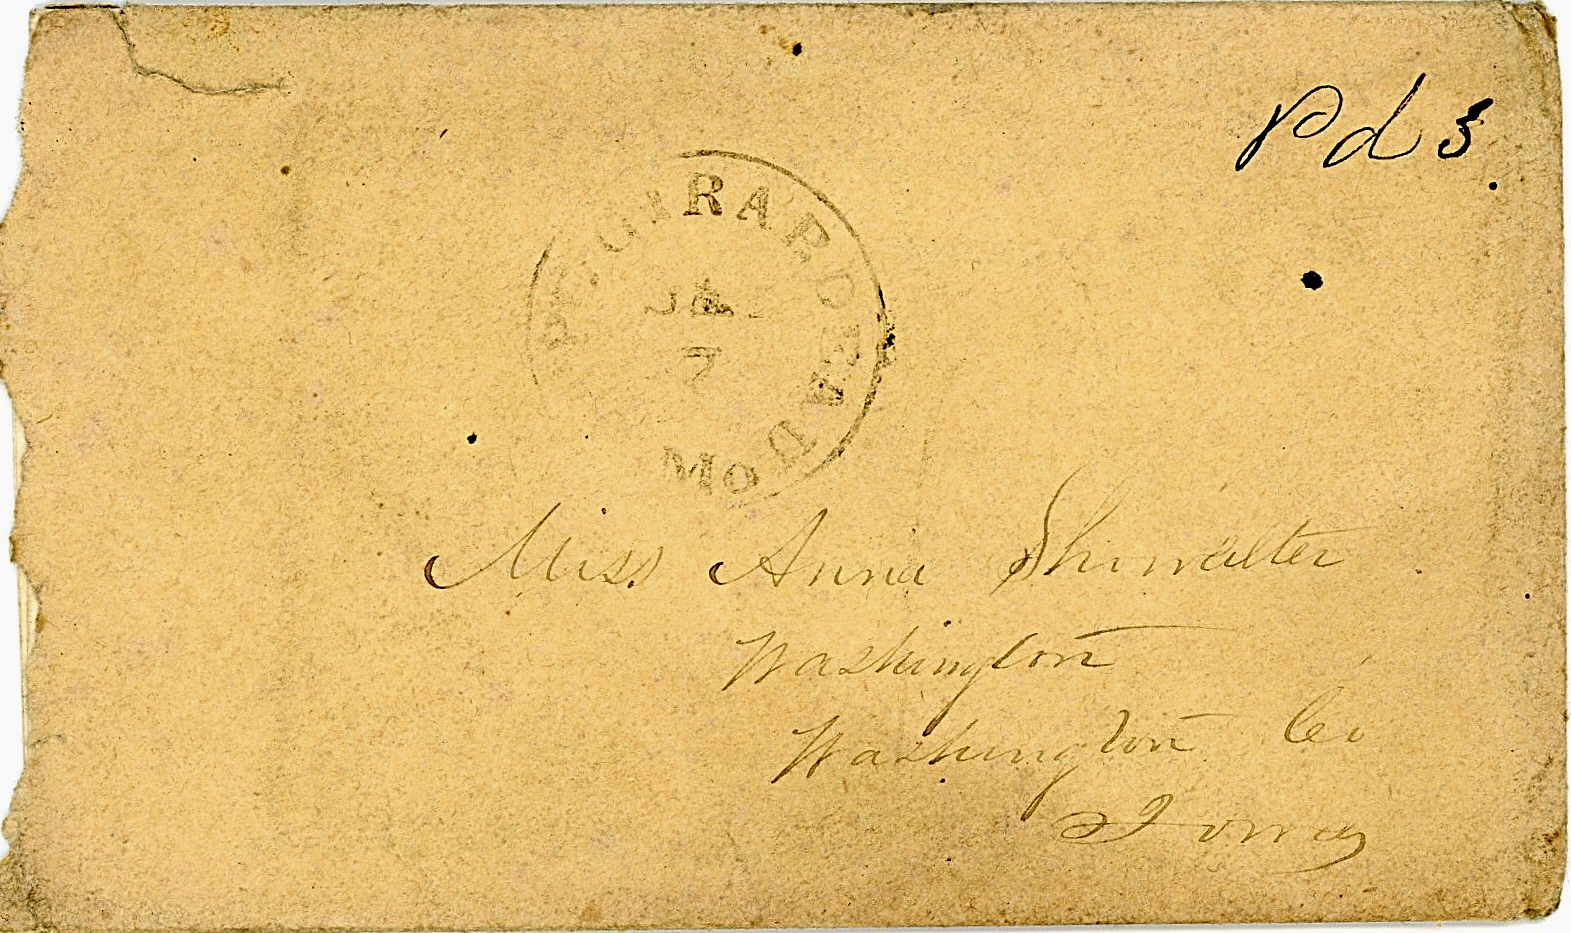 Pd 3
PE. GIRARDEAU
Mo
JAN
7
Miss Anna Shiwalter
Washington
Washington Co
Iowa